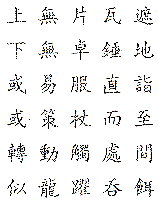 上無片瓦遮
下無卓錐地
或易服直詣
或策杖而至
轉動觸處間
似龍躍吞餌